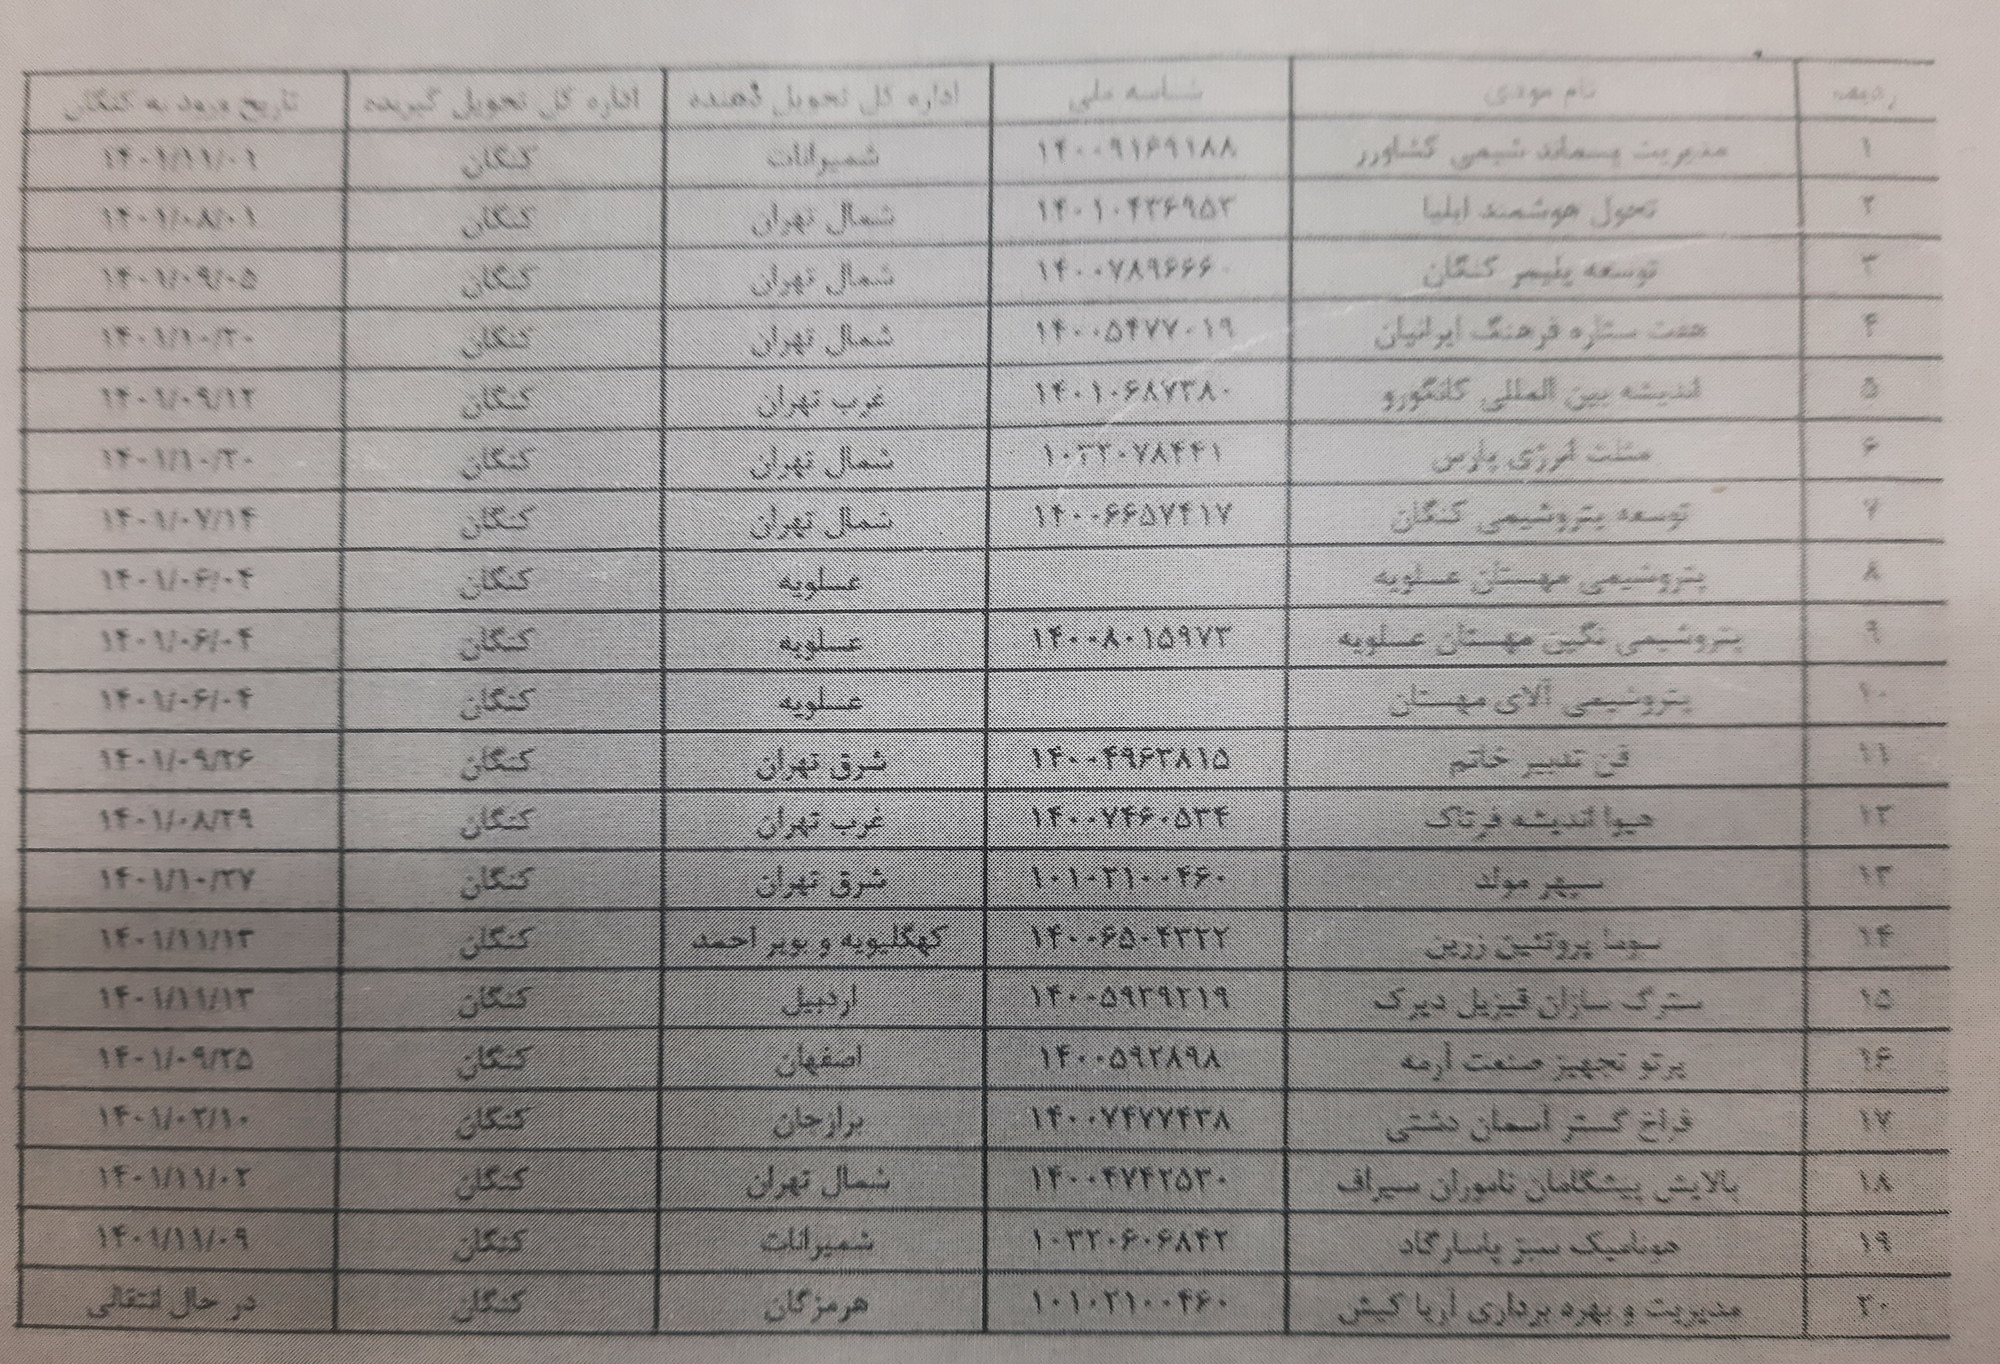 ردیف نام مودی شناسه ملی اداره کل تحویل دهنده اداره کل تحویل گیرنده تاریخ ورود به کنگان
۱ مدیریت پسماند شیمی کشاورز ۱۴۰۰۹۱۶۹۱۸۸ شمیرانات کنگان ۱۴۰۱/۱۱/۰۱
۲ تحول هوشمند ایلیا ۱۴۰۱۰۴۳۶۹۵۳ شمال تهران کنگان ۱۴۰۱/۰۸/۰۱
۳ توسعه پلیمر کنگان ۱۴۰۰۷۸۹۶۶۶۰ شمال تهران کنگان ۱۴۰۱/۰۹/۰۵
۴ هفت ستاره فرهنگ ایرانیان ۱۴۰۰۵۴۷۷۰۱۹ شمال تهران کنگان ۱۴۰۱/۱۰/۲۰
۵ اندیشه بین المللی کانگورو ۱۴۰۱۰۶۸۷۳۸۰ غرب تهران کنگان ۱۴۰۱/۰۹/۱۲
۶ مثلث انرژی پارس ۱۰۳۲۰۷۸۴۴۱ شمال تهران کنگان ۱۴۰۱/۱۰/۲۰
۷ توسعه پتروشیمی کنگان ۱۴۰۰۶۶۵۷۴۱۷ شمال تهران کنگان ۱۴۰۱/۰۷/۱۴
۸ پتروشیمی مهستان عسلویه عسلویه کنگان ۱۴۰۱/۰۶/۰۴
۹ پتروشیمی نگین مهستان عسلویه ۱۴۰۰۸۰۱۵۹۷۳ عسلویه کنگان ۱۴۰۱/۰۶/۰۴
۱۰ پتروشیمی آلای مهستان عسلویه کنگان ۱۴۰۱/۰۶/۰۴
۱۱ فن تدبیر خاتم ۱۴۰۰۴۹۶۳۸۱۵ شرق تهران کنگان ۱۴۰۱/۰۹/۲۶
۱۲ هیوا اندیشه فرتاک ۱۴۰۰۷۴۶۰۵۳۴ غرب تهران کنگان ۱۴۰۱/۰۸/۲۹
۱۳ سپهر مولد ۱۰۱۰۲۱۰۰۴۶۰ شرق تهران کنگان ۱۴۰۱/۱۰/۲۷
۱۴ سوما پروتئین زرین ۱۴۰۰۶۵۰۴۳۲۲ کهگلیویه و بویر احمد کنگان ۱۴۰۱/۱۱/۱۳
۱۵ سترگ سازان قیزیل دیرک ۱۴۰۰۵۹۳۹۲۱۹ اردبیل کنگان ۱۴۰۱/۱۱/۱۳
۱۶ پرتو تجهیز صنعت آرمه ۱۴۰۰۵۹۲۸۹۸ اصفهان کنگان ۱۴۰۱/۰۹/۲۵
۱۷ فراخ گستر آسمان دشتی ۱۴۰۰۷۴۷۷۴۳۸ برازجان کنگان ۱۴۰۱/۰۲/۱۰
۱۸ پالایش پیشگامان ناموران سیراف ۱۴۰۰۴۷۴۲۵۳۰ شمال تهران کنگان ۱۴۰۱/۱۱/۰۲
۱۹ سبز پاسارگاد ۱۰۳۲۰۶۰۶۸۴۲ شمیرانات کنگان ۱۴۰۱/۱۱/۰۹
۲۰ مدیریت و بهره برداری آریا کیش ۱۰۱۰۲۱۰۰۴۶۰ هرمزگان کنگان در حال انتقالی